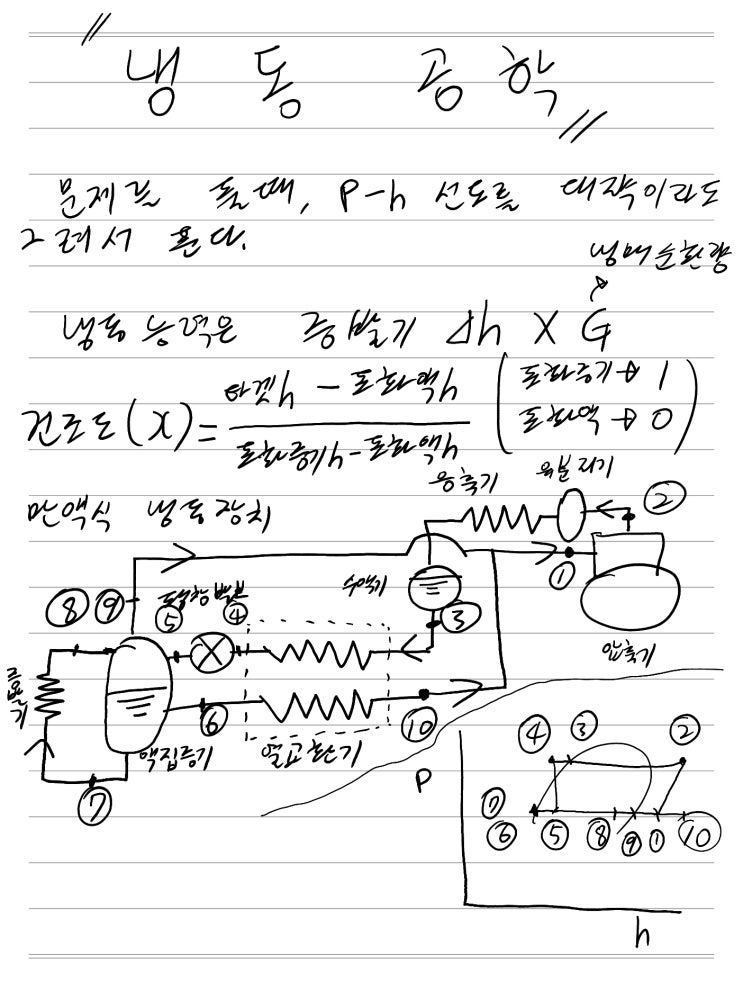 " 냉동공학 "
문제를 풀때, P-h 선도를 대략이라도
그려서 푼다.
냉매순환량
냉동능력은 증발기 Δh X G
건조도(x) = 타겟h - 포화액h / 포화증기h - 포화액h (포화증기→1 포화액→0)
만액식 냉동장치
응축기 유분리기 ②
⑧ ⑨ 팽창밸브 수액기 ①
⑤ ④ ③
압축기
증발기 ⑥ ⑩
액집중기 열교환기
⑦
P ④ ③ ②
⑦
⑥ ⑤ ⑧ ⑨ ① ⑩
h